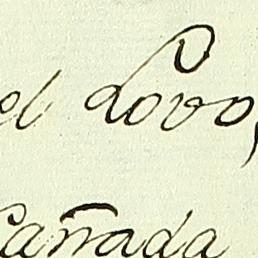 el Lovo,
Cañada